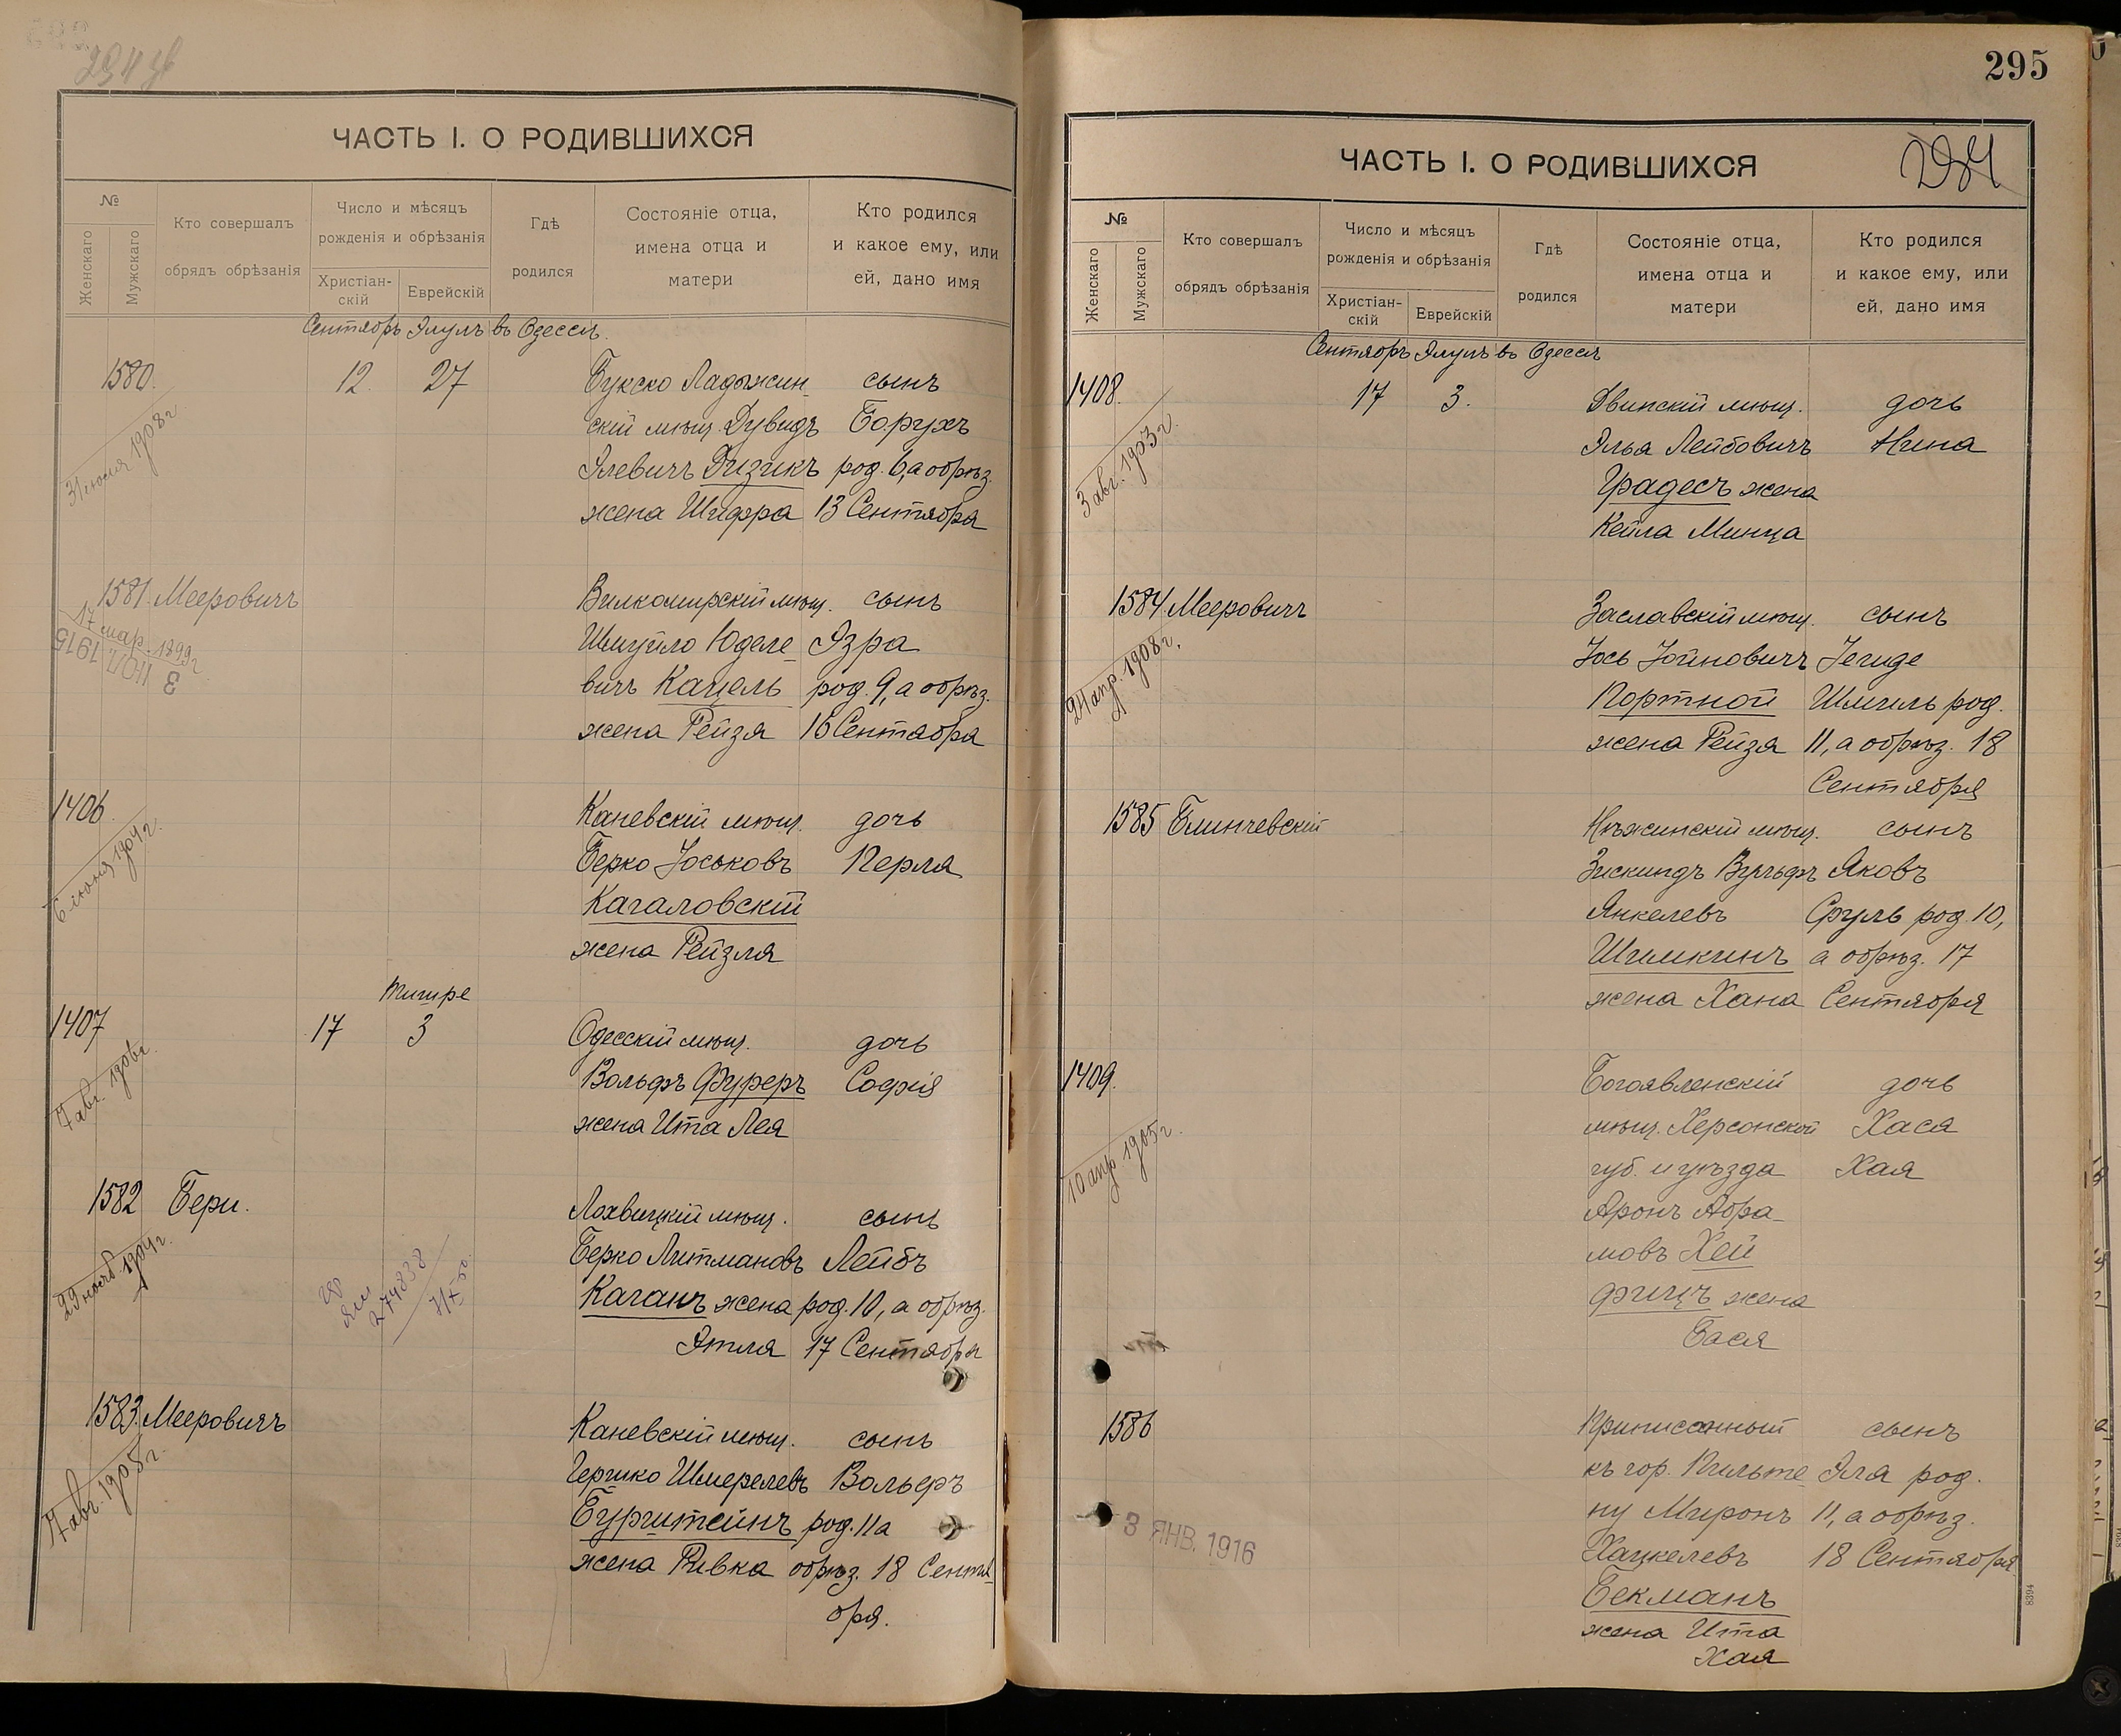 ЧАСТЬ I. О РОДИВШИХСЯ
№
Женскаго
Мужскаго
Кто совершалъ
обрядъ обрѣзанія
Число и мѣсяцъ
рожденія и обрѣзанія
Христіан-
скій
Еврейскій
Гдѣ
родился
Состояніе отца,
имена отца и
матери
Кто родился
и какое ему, или
ей, дано имя
Сентябрь Элулъ въ Одессѣ.
1580. 12. 27 Букско Ладыжин сынъ
скій мѣщ. Дувидъ Борухъ
Элевичъ Дизикъ род. 6, а обрѣз.
жена Шифра 13 Сентября
31 июля 1908 г.
1581. Мееровичъ Вилкомирскій мѣщ. сынъ
Шмуйло Юделе Эзра
вичъ Кацель род. 9, а обрѣз.
жена Рейзя 16 Сентября
17 мар. 1899 г.
3 ИЮЛ 1915
1406. Каневскій мѣщ. дочь
Берко Іоськовъ Перля
Кагаловскій
жена Рейзля
6 июня 1904 г.
тишре
1407 17 3 Одесскій мѣщ. дочь
Вольфъ Фуреръ Софія
жена Ита Лея
7 авг. 1906 г.
1582 Бери. Лохвицкій мѣщ. сынъ
Берко Литмановъ Лейбъ
Каганъ жена род. 10, а обрѣз.
Этля 17 Сентября
29 нояб. 1904 г.
274838
1583. Мееровичъ Каневскій мѣщ. сынъ
Гершко Шмерелевъ Вольфъ
Бурштейнъ род. 11 а
жена Ривка обрѣз. 18 Сентя
бря.
7 авг. 1905 г.
295
294
ЧАСТЬ I. О РОДИВШИХСЯ
№
Женскаго
Мужскаго
Кто совершалъ
обрядъ обрѣзанія
Число и мѣсяцъ
рожденія и обрѣзанія
Христіан-
скій
Еврейскій
Гдѣ
родился
Состояніе отца,
имена отца и
матери
Кто родился
и какое ему, или
ей, дано имя
Сентябрь Элулъ въ Одессѣ
1408. 17 3. Двинскій мѣщ. дочь
Элья Лейбовичъ Нина
Градесъ жена
Кейла Минца
3 авг. 1903 г.
1584 Мееровичъ Заславскій мѣщ. сынъ
Іось Іойновичъ Іегиде
Портной Шмиль род.
жена Рейзя 11, а обрѣз. 18
Сентября
24 апр. 1908 г.
1585 Блинчевскій Нѣжинскій мѣщ. сынъ
Зискиндъ Вульфъ Яковъ
Янкелевъ Сруль род. 10,
Шимкинъ а обрѣз. 17
жена Хана Сентября
1409. Богоявленскій дочь
мѣщ. Херсонской Хася
губ. и уѣзда Хая
Аронъ Абра
мовъ Хей
фицъ жена
Бася
10 апр 1905 г.
1586 Приписанный сынъ
къ гор. Пильте Эля род.
ну Миронъ 11, а обрѣз.
Хацкелевъ 18 Сентября
Бекманъ
жена Ита
Хая
3 ЯНВ. 1916
8394